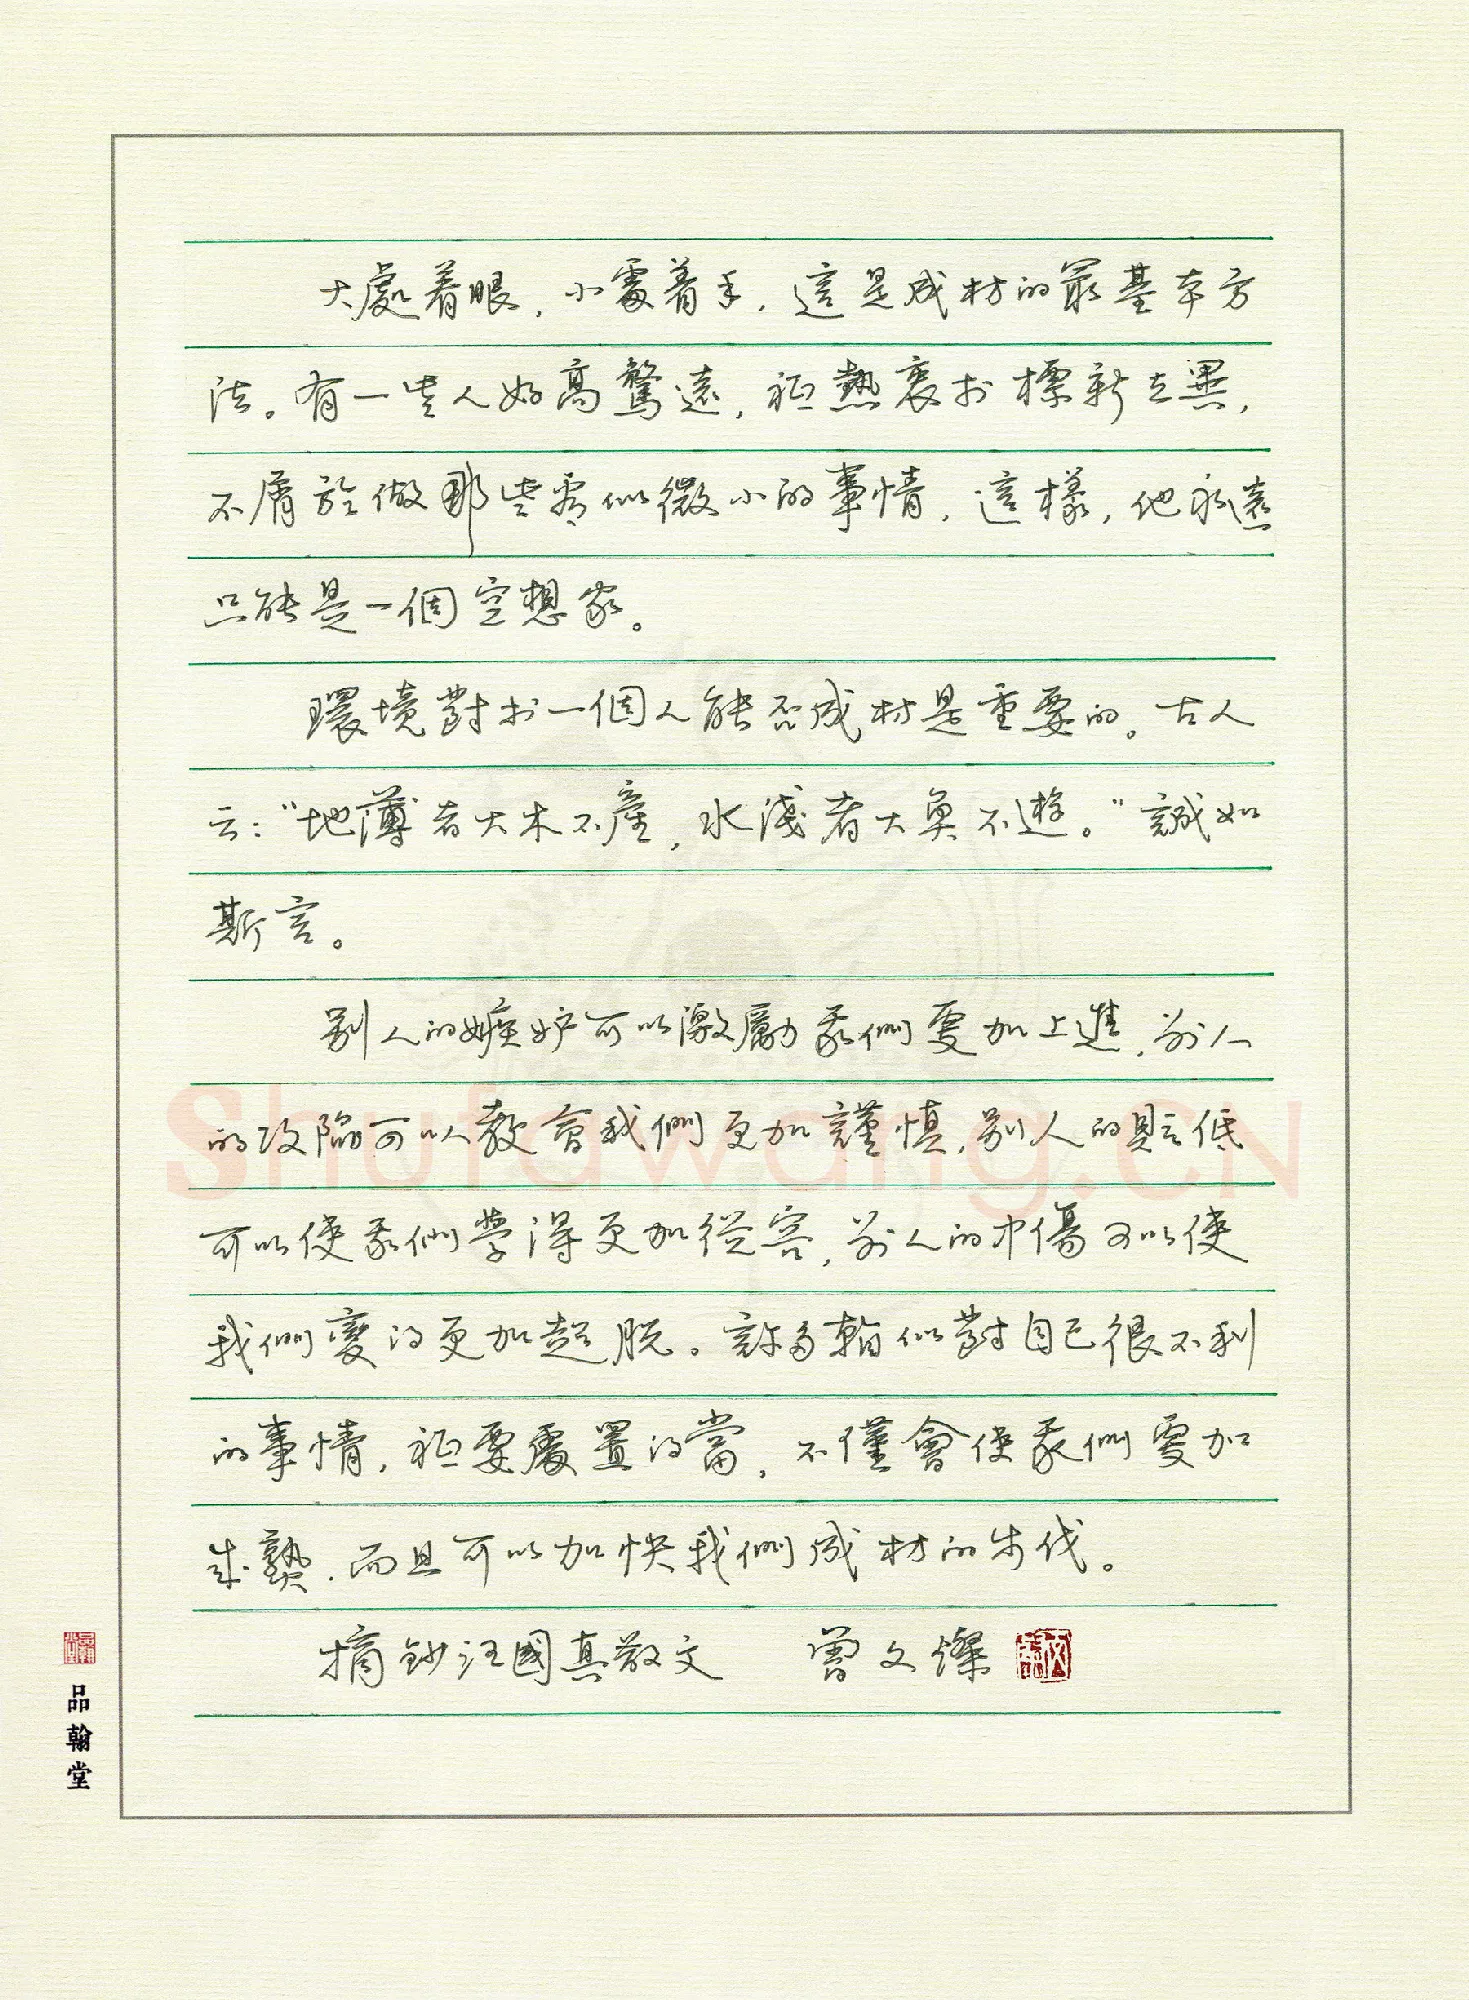 大處着眼，小處着手，這是成材的最基本方
法。有一些人好高騖遠，衹熱衷於標新立異，
不屑於做那些看似微小的事情，這樣，他永遠
只能是一個空想家。
環境對於一個人能否成材是重要的。古人
云：“地薄者大木不產，水淺者大魚不遊。”誠如
斯言。
別人的嫉妒可以激勵我們更加上進，別人
的攻陷可以教會我們更加謹慎，別人的貶低
可以使我們學得更加從容，別人的中傷可以使
我們變得更加超脫。許多貌似對自己很不利
的事情，衹要處置得當，不僅會使我們更加
成熟，而且可以加快我們成材的步伐。
摘鈔汪國真散文 曾文燦
品翰堂
Shufawang.CN